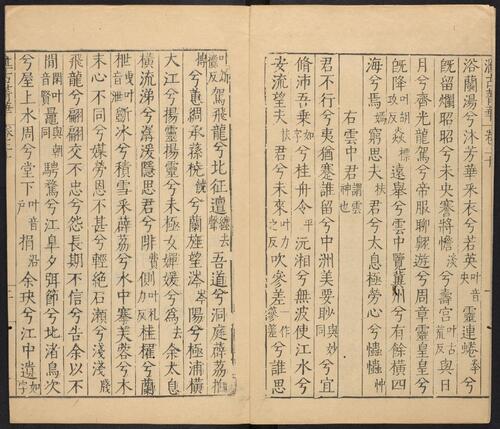 浴蘭湯兮沐芳華采衣兮若英叶音央靈連蜷拳兮
旣留爛昭昭兮未央蹇將憺淡兮壽宮叶古荒反與日
月兮齊光龍駕兮帝服聊翱遊兮周章靈皇皇兮
旣降叶胡攻反猋標遠舉兮雲中覽冀州兮有餘橫四
海兮焉窮思夫扶君兮太息極勞心兮𢥞𢥞忡
右雲中君謂雲神也
君不行兮夷猶蹇誰留兮中洲美要眇與妙同兮宜
脩沛吾乘如字兮桂舟令平沅湘兮無波使江水兮
安流望夫扶君兮未來叶力之反吹參差一作兮誰思
駕飛龍兮北征邅纏去聲吾道兮洞庭薜荔拍
搏兮蕙綢承孫橈饒兮蘭旌望涔岑陽兮極浦橫
大江兮揚靈揚靈兮未極女嬋媛兮爲去余太息
橫流涕兮潺湲隱思君兮陫費側叶札力反桂櫂兮蘭
枻叶音泄斲冰兮積雪采薜荔兮水中搴芙蓉兮木
末心不同兮媒勞恩不甚兮輕絶石瀬兮淺淺牋
飛龍兮翩翩交不忠兮怨長期不信兮告余以不
閒閑叶音賢鼂與朝同騁騖兮江皋夕弭節兮北渚鳥次
兮屋上水周兮堂下叶音戶捐沿余玦兮江中遺如字